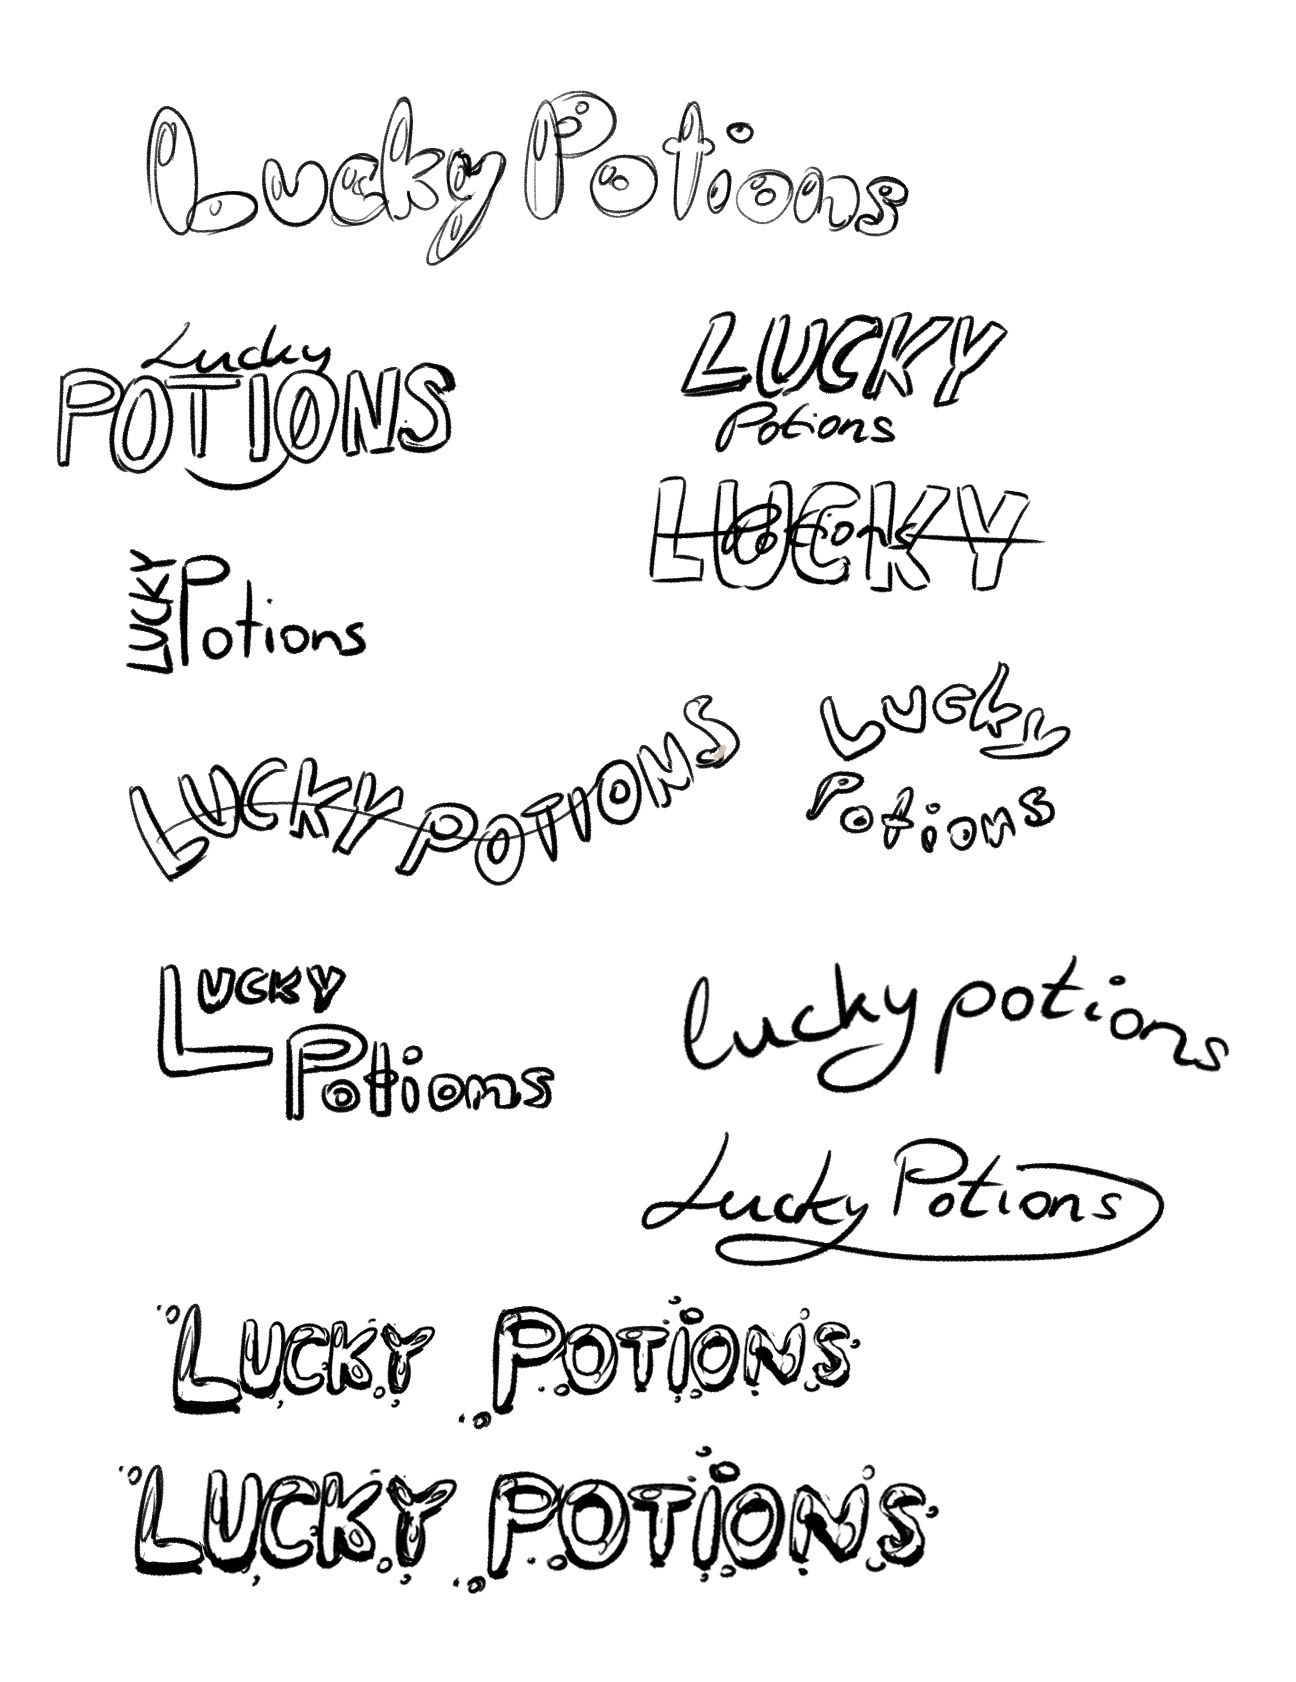 Lucky Potions
Lucky
POTIONS
LUCKY
Potions
LUCKY
Potions
LUCKY
Potions
LUCKY POTIONS
Lucky
Potions
LUCKY
Potions
lucky potions
Lucky Potions
LUCKY POTIONS
LUCKY POTIONS